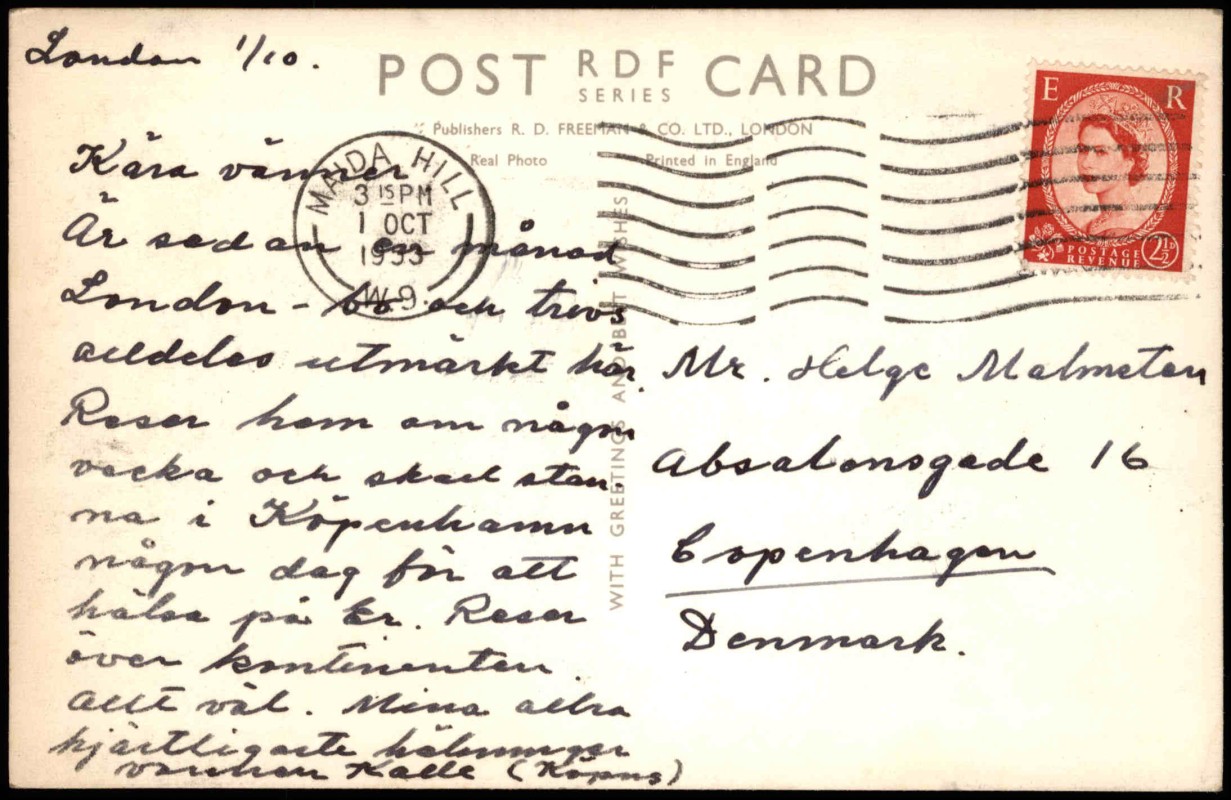 London 1/10.
POST RDF SERIES CARD
Publishers R. D. FREEMAN & CO. LTD., LONDON
Real Photo Printed in England
E R
POSTAGE
REVENUE
2½D
MAIDA HILL
3 15 PM
1 OCT
1953
W.9.
Kära vänner
Är sedan en månad
London - bo och trivs
alldeles utmärkt här.
Reser hem om någon
vecka och skall stan-
na i Köpenhamn
någon dag för att
hälsa på Er. Reser
över kontinenten.
Allt väl. Mina allra
hjärtligaste hälsningar
Kalle
WITH GREETINGS AND BEST WISHES
Mr. Helge Malmsten
Absalonsgade 16
Copenhagen
Denmark.